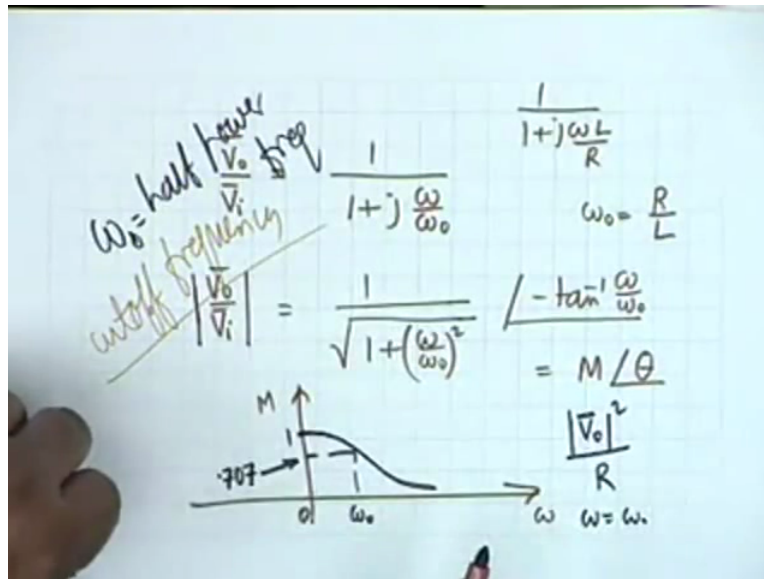 1 / (1 + j ωL/R)
ω₀ = half power freq
V̄o / V̄i
1 / (1 + j ω/ω₀)
ω₀ = R/L
cutoff frequency
|V̄o / V̄i| = 1 / √(1 + (ω/ω₀)²) ∠ -tan⁻¹ ω/ω₀
= M ∠θ
|V̄o|² / R
M
1
.707
0 ω₀ ω ω = ω₀